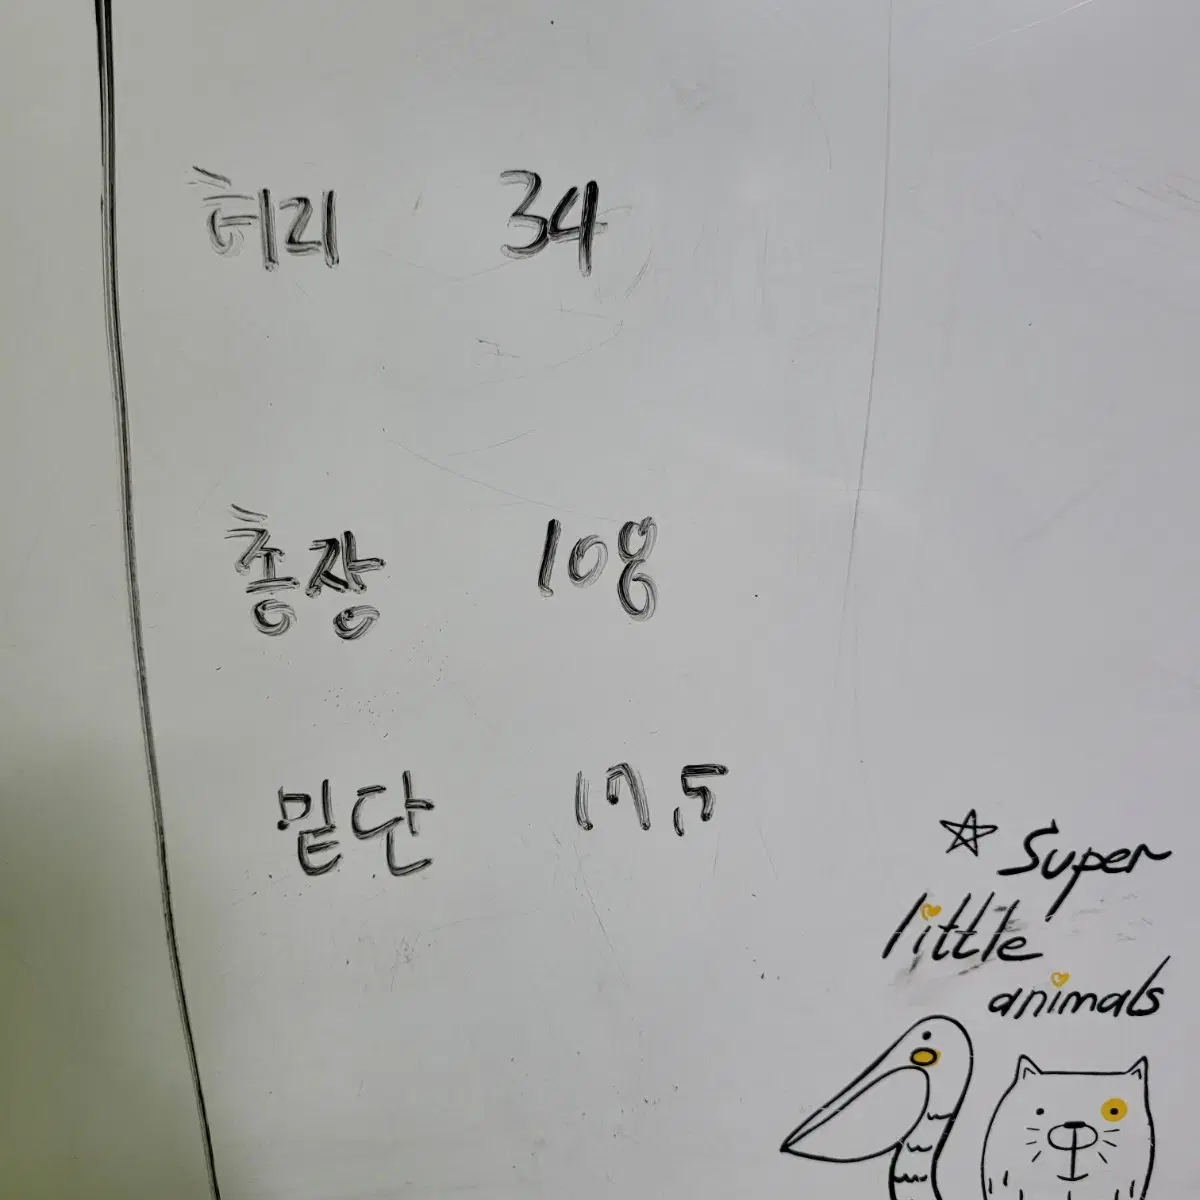 허리 34
총장 108
밑단 17.5
☆ Super
little
animals